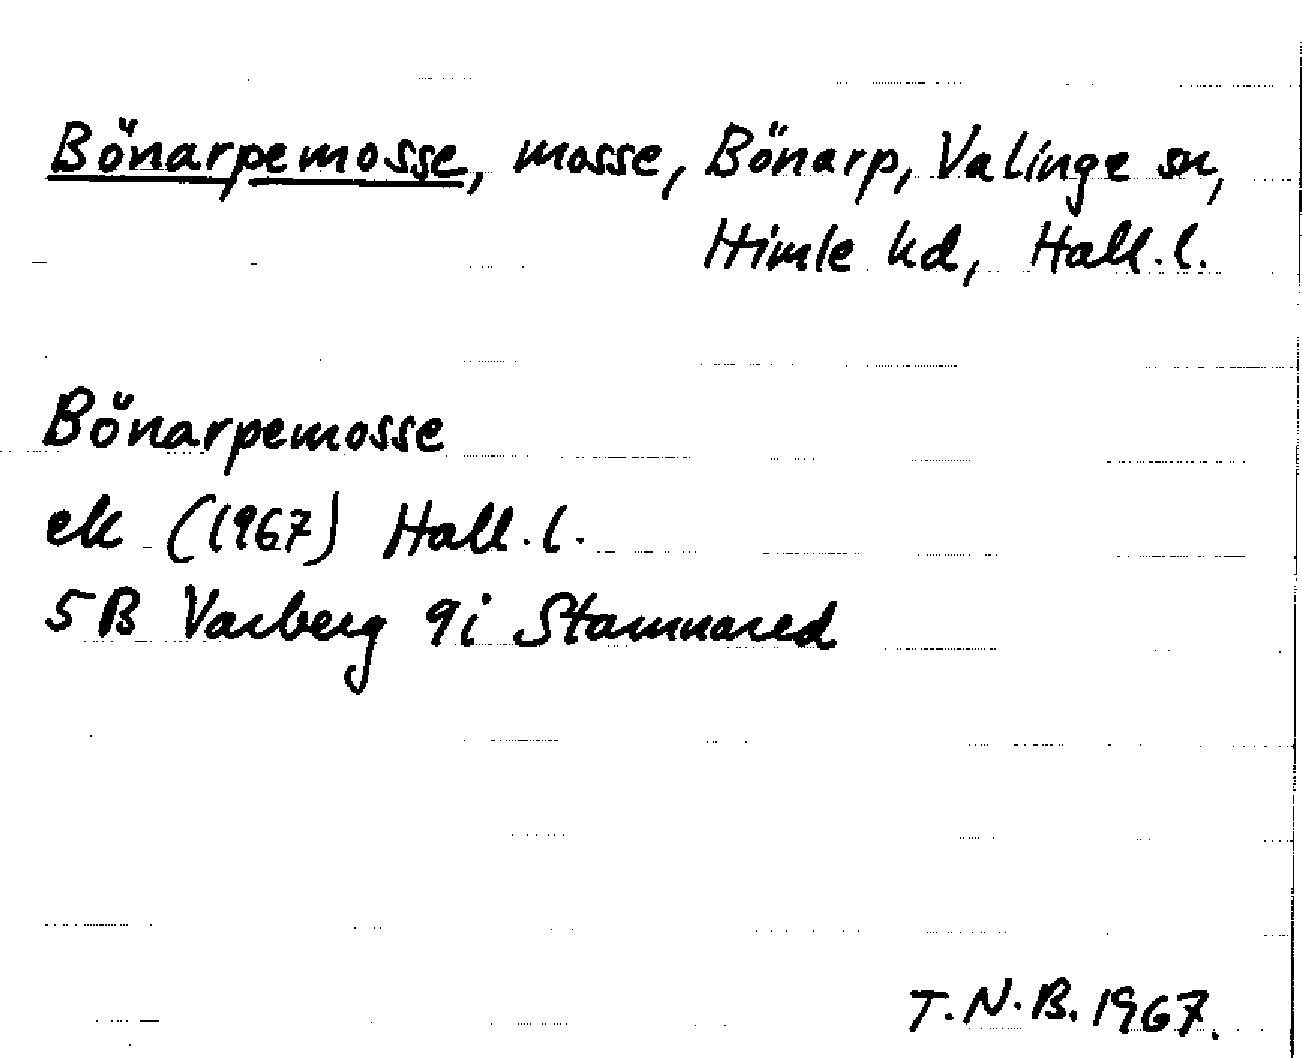 Bönarpemosse, mosse, Bönarp, Valinge sn,
Himle hd, Hall. l.
Bönarpemosse
ek (1967) Hall. l.
5B Varberg 9i Stamnared
T.N.B. 1967.